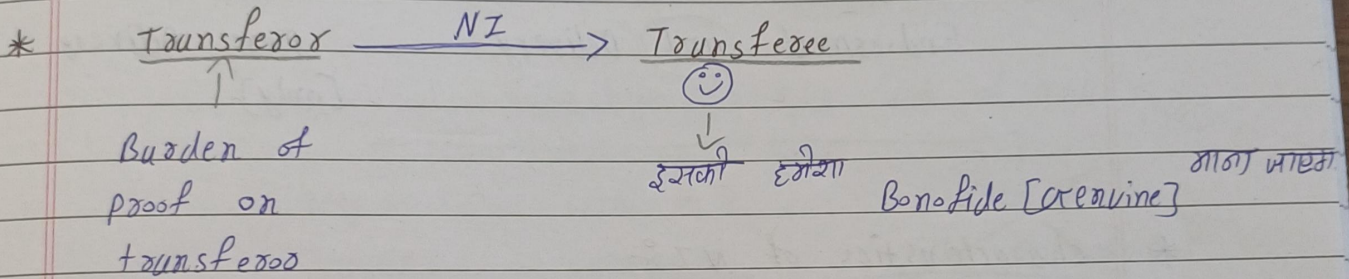 * Transferor NI Transferee
Burden of
proof on
transferor
इसको हमेशा Bonofide [Genuine] माना जाएगा